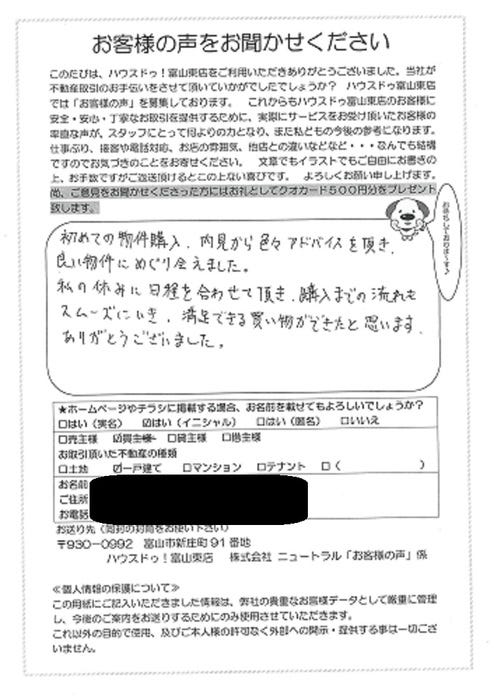 お客様の声をお聞かせください
このたびは、ハウスドゥ！富山東店をご利用いただきありがとうございました。当社が
不動産取引のお手伝いをさせて頂いていかがでしたでしょうか？ ハウスドゥ富山東店
では「お客様の声」を募集しております。 これからもハウスドゥ富山東店のお客様に
安全・安心・丁寧なお取引を提供するために、実際にサービスをお受け頂いたお客様の
率直な声が、スタッフにとって何よりの力となり、また私どもの今後の参考になります。
仕事ぶり、接客や電話対応、お店の雰囲気、他店との違いなどなど・・・なんでも結構
ですのでお気づきのことをお寄せください。 文章でもイラストでもご自由にお書きの
上、お手数ですがご返送頂けるとこの上ない喜びです。 よろしくお願い申し上げます。
尚、ご意見をお聞かせくださった方にはお礼としてクオカード500円分をプレゼント
致します。
お待ちしております♪
初めての物件購入、内見から色々アドバイスを頂き、
良い物件にめぐり会えました。
私の休みに日程を合わせて頂き、購入までの流れも
スムーズにいき、満足できる買い物ができたと思います。
ありがとうございました。
★ホームページやチラシに掲載する場合、お名前を載せてもよろしいでしょうか？
□はい（実名） ☑はい（イニシャル） □はい（匿名） □いいえ
□売主様 ☑買主様 □貸主様 □借主様
お取引頂いた不動産の種類
□土地 ☑一戸建て □マンション □テナント □（ ）
お名前
ご住所
お電話
お送り先（同封の封筒をお使い下さい）
〒930-0992 富山市新庄町91番地
ハウスドゥ！富山東店 株式会社 ニュートラル「お客様の声」係
≪個人情報の保護について≫
この用紙にご記入いただきました情報は、弊社の貴重なお客様データとして厳重に管理
し、今後のご案内をお送りするためにのみ使用させていただきます。
これ以外の目的で使用、及びご本人様の許可なく外部への開示・提供する事は一切ござ
いません。